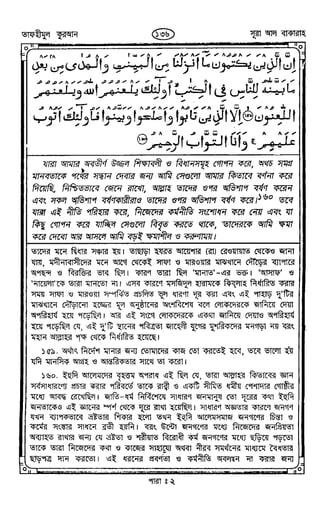 তাফহীমুল কুরআন
১৩৬
সূরা আল বাকারাহ
إِنَّ الَّذِينَ يَكْتُمُونَ مَا أَنْزَلْنَا مِنَ الْبَيِّنٰتِ وَالْهُدٰى مِنْ بَعْدِ
مَا بَيَّنّٰهُ لِلنَّاسِ فِي الْكِتٰبِ أُولٰئِكَ يَلْعَنُهُمُ اللهُ وَيَلْعَنُهُمُ
اللّٰعِنُونَ ۝ إِلَّا الَّذِينَ تَابُوا وَأَصْلَحُوا وَبَيَّنُوا فَأُولٰئِكَ أَتُوبُ
عَلَيْهِمْ ۚ وَأَنَا التَّوَّابُ الرَّحِيمُ ۝
যারা আমার অবতীর্ণ উজ্জল শিক্ষাবলী ও বিধানসমূহ গোপন করে, অথচ সমগ্র
মানবতাকে পথের সন্ধান দেবার জন্য আমি সেগুলো আমার কিতাবে বর্ণনা করে
দিয়েছি, নিশ্চিতভাবে জেনে রাখো, আল্লাহ তাদের ওপর অভিশাপ বর্ষণ করেন
এবং সকল অভিশাপ বর্ষণকারীরাও তাদের ওপর অভিশাপ বর্ষণ করে।১৬০ তবে
যারা এই নীতি পরিহার করে, নিজেদের কর্মনীতি সংশোধন করে নেয় এবং যা
কিছু গোপন করে যাচ্ছিল সেগুলো বিবৃত করতে থাকে, তাদেরকে আমি ক্ষমা
করে দেবো আর আসলে আমি বড়ই ক্ষমাশীল ও করুণাময়।
তাদের মনে দ্বিধার সঞ্চার হয়। তাছাড়া হযরত আয়েশার (রা) রেওয়ায়াত থেকেও জানা
যায়, মদীনাবাসীদের মনে আগে থেকেই সাফা ও মারওয়ার মাঝখানে দৌড়ের ব্যাপারে
অপছন্দ ও বিরক্তির ভাব ছিল। কারণ তারা ছিল 'মানাত'-এর ভক্ত। 'আসাফ' ও
'নায়েলা'কে তারা মানতো না। এসব কারণে মসজিদুল হারামকে কিবলাহ নির্ধারিত করার
সময় সাফা ও মারওয়া সম্পর্কিত প্রচলিত ভুল ধারণা দূর করা এবং এই পাহাড় দু'টির
মাঝখানে দৌড়ানো হজ্জের মূল অনুষ্ঠানের অংশবিশেষ বলে লোকদেরকে জানিয়ে দেয়া
অপরিহার্য হয়ে পড়েছিল। আর এই সংগে লোকদেরকে একথা জানিয়ে দেয়াও অপরিহার্য
হয়ে পড়েছিল যে, এই দু'টি স্থানের পবিত্রতা জাহেলী যুগের মুশরিকদের মনগড়া নয় বরং
মহান আল্লাহর পক্ষ থেকে নির্ধারিত হয়েছে।
১৫৯. অর্থাৎ নির্দেশ মানার জন্য তোমাদের কাজ তো করতেই হবে, তবে ভালো হয়
যদি মানসিক আগ্রহ ও আন্তরিকতার সাথে তা করো।
১৬০. ইহুদি আলেমদের বৃহত্তম অপরাধ এই ছিল যে, তারা আল্লাহর কিতাবের জ্ঞান
সর্বসাধারণ্যে প্রচার করার পরিবর্তে তাকে রাব্বী ও একটি সীমিত ধর্মীয় পেশাদার গোষ্ঠীর
মধ্যে আবদ্ধ রেখেছিল। জাতি-ধর্ম নির্বিশেষে সাধারণ জনমানুষ তো দূরের কথা ইহুদি
জনতাকেও এই জ্ঞানের স্পর্শ থেকে দূরে রাখা হয়েছিল। সাধারণ অজ্ঞতার কারণে জনগণ
যখন ব্যাপকভাবে ভ্রষ্টতার শিকার হলো তখন ইহুদি আলেমসমাজ জনগণের চিন্তা ও
কর্মের সংস্কার সাধনে ব্রতী হয়নি। বরং উল্টো জনগণের মধ্যে নিজেদের জনপ্রিয়তা
অব্যাহত রাখার জন্য যে ভ্রষ্টতা ও শরীয়াত বিরোধী কর্ম জনগণের মধ্যে ছড়িয়ে পড়তো
তাকে তারা নিজেদের কথা ও কাজের সাহায্যে অথবা নীরব সমর্থনের মাধ্যমে বৈধতার
ছাড়পত্র দান করতো। এই ধরনের প্রবণতা ও কর্মনীতি অবলম্বন না করার জন্য
পারা : ২